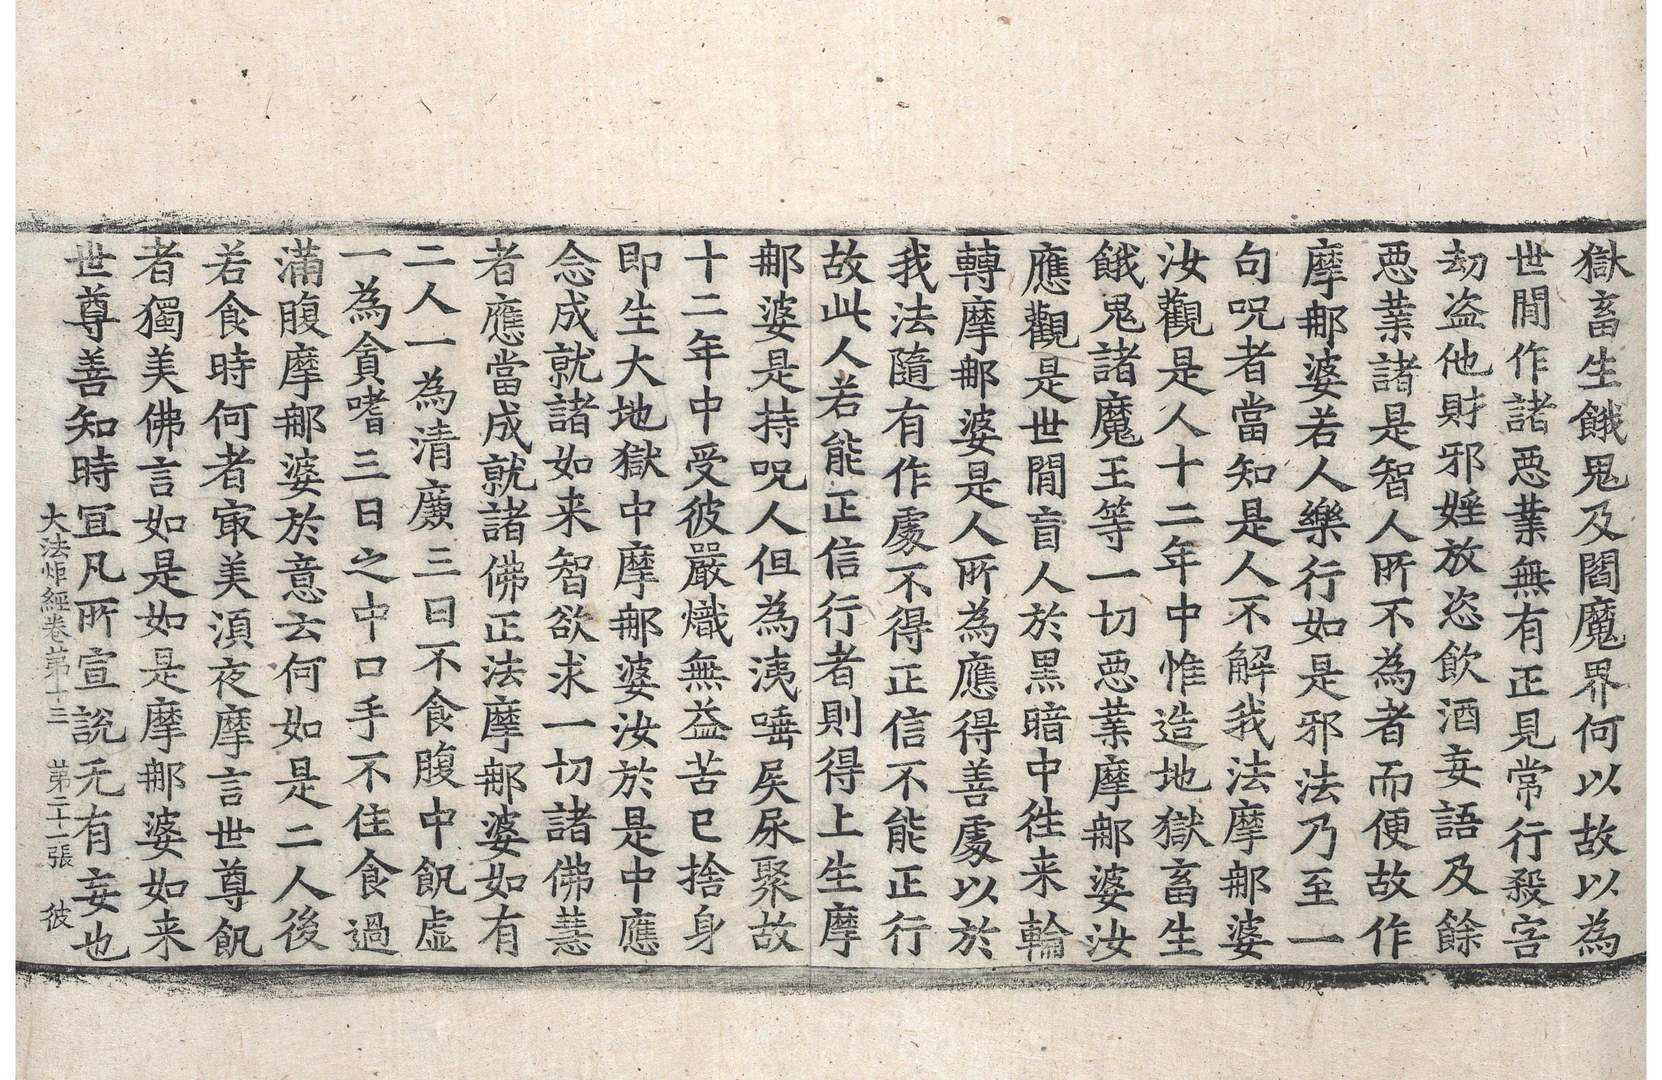 獄畜生餓鬼及閻魔界何以故以為
世閒作諸惡業無有正見常行殺害
劫盜他財邪婬放恣飲酒妄語及餘
惡業諸是智人所不為者而便故作
摩那婆若人樂行如是邪法乃至一
句呪者當知是人不解我法摩那婆
汝觀是人十二年中惟造地獄畜生
餓鬼諸魔王等一切惡業摩那婆汝
應觀是世閒盲人於黒暗中徃来輪
轉摩那婆是人所為應得善處以於
我法隨有作處不得正信不能正行
故此人若能正信行者則得上生摩
那婆是持呪人但為洟唾屎尿聚故
十二年中受彼嚴熾無益苦已捨身
即生大地獄中摩那婆汝於是中應
念成就諸如来智欲求一切諸佛慧
者應當成就諸佛正法摩那婆如有
二人一為清廣三日不食腹中飢虛
一為貪嗜三日之中口手不住食過
滿腹摩那婆於意云何如是二人後
若食時何者㝡美湏夜摩言世尊飢
者獨美佛言如是如是摩那婆如来
世尊善知時冝凡所宣說无有妄也
大法炬經卷第十三 第二十一張 彼